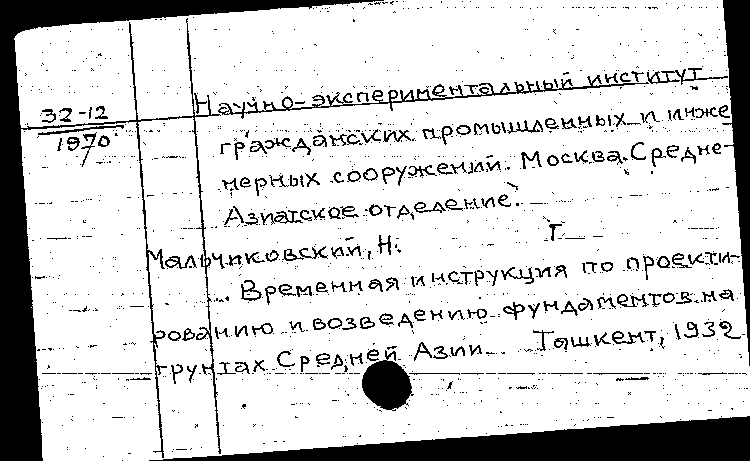 32-12
1970
Научно-экспериментальный институт
гражданских промышленных и инже
нерных сооружений. Москва. Средне-
Азиатское отделение.
Мальчиковский, Н. Т
... Временная инструкция по проекти-
рованию и возведению фундаментов на
грунтах Средней Азии. Ташкент, 1932